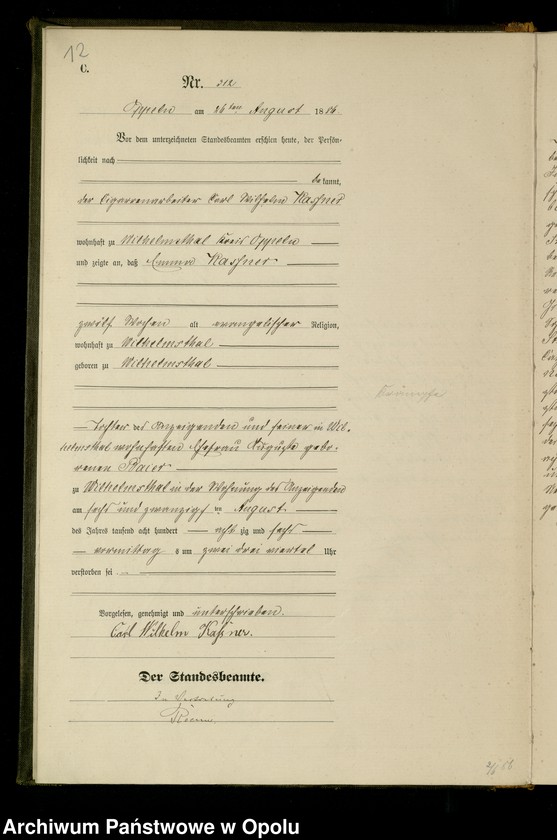 12
C.
Nr. 312
Oppeln am 26ten August 1886.
Vor dem unterzeichneten Standesbeamten erschien heute, der Persön-
lichkeit nach
bekannt,
der Cigarrenarbeiter Carl Wilhelm Kaßner
wohnhaft zu Wilhelmsthal Kreis Oppeln
und zeigte an, daß Emma Kaßner
zwölf Wochen alt evangelischer Religion,
wohnhaft zu Wilhelmsthal
geboren zu Wilhelmsthal
Krämpfe
Tochter des Anzeigenden und seiner in Wil-
helmsthal wohnhaften Ehefrau Auguste gebo-
renen Baier
zu Wilhelmsthal in der Wohnung des Anzeigenden
am sechs und zwanzigsten August
des Jahres tausend acht hundert acht zig und sechs
vormittag s um zwei drei viertel Uhr
verstorben sei
Vorgelesen, genehmigt und unterschrieben.
Carl Wilhelm Kaßner.
Der Standesbeamte.
In Vertretung
Archiwum Państwowe w Opolu